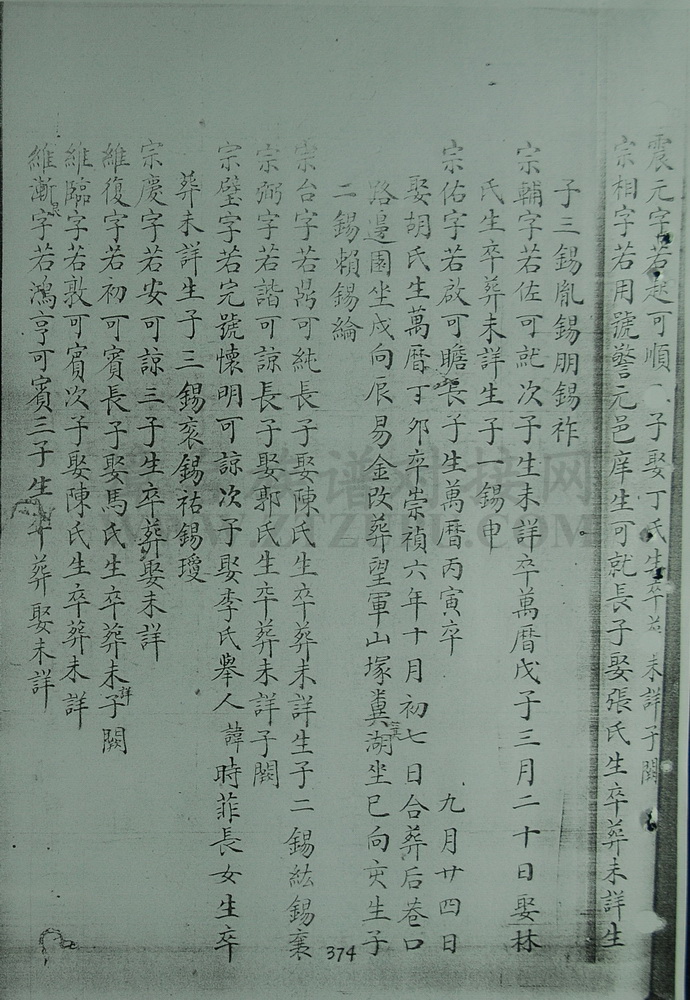 震元字若起可順子娶丁氏生卒葬未詳子闕
宗相字若用號警元邑庠生可就長子娶張氏生卒葬未詳生
子三錫胤錫朋錫祚
宗輔字若佐可就次子生未詳卒萬曆戊子三月二十日娶林
氏生卒葬未詳生子一錫申
宗佑字若啟可瞻長子生萬曆丙寅卒 九月廿四日
娶胡氏生萬曆丁卯卒崇禎六年十月初七日合葬后巷口
路邊園坐戌向辰易金改葬望軍山塚糞湖坐巳向亥生子
二錫賴錫綸
宗台字若喦可純長子娶陳氏生卒葬未詳生子二錫紘錫裏
宗弼字若諧可諒長子娶郭氏生卒葬未詳子闕
宗璧字若完號懷明可諒次子娶李氏舉人諱時菲長女生卒
葬未詳生子三錫衮錫祜錫瓊
宗慶字若安可諒三子生卒葬娶未詳
維復字若初可賓長子娶馬氏生卒葬未詳子闕
維臨字若敦可賓次子娶陳氏生卒葬未詳
維漸字若鴻亨可賓三子生卒葬娶未詳
374